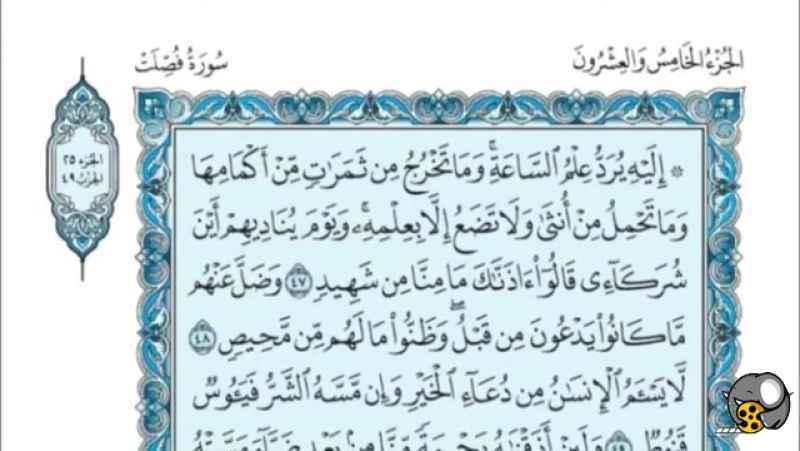 الجُزْءُ الخَامِسُ وَالعِشْرُونَ
سُورَةُ فُصِّلَتْ
الجزء ٢٥
الحزب ٤٩
۞ إِلَيْهِ يُرَدُّ عِلْمُ ٱلسَّاعَةِۚ وَمَا تَخْرُجُ مِن ثَمَرَٰتٖ مِّنۡ أَكْمَامِهَا
وَمَا تَحْمِلُ مِنْ أُنثَىٰ وَلَا تَضَعُ إِلَّا بِعِلْمِهِۦۚ وَيَوْمَ يُنَادِيهِمْ أَيْنَ
شُرَكَآءِى قَالُوٓا۟ ءَاذَنَّٰكَ مَا مِنَّا مِن شَهِيدٖ ٤٧ وَضَلَّ عَنْهُم
مَّا كَانُوا۟ يَدْعُونَ مِن قَبْلُۖ وَظَنُّوا۟ مَا لَهُم مِّن مَّحِيصٖ ٤٨
لَّا يَسْـَٔمُ ٱلْإِنسَٰنُ مِن دُعَآءِ ٱلْخَيْرِ وَإِن مَّسَّهُ ٱلشَّرُّ فَيَـُٔوسٞ
قَنُوطٞ ٤٩ وَلَئِنْ أَذَقْنَٰهُ رَحْمَةٗ مِّنَّا مِنۢ بَعْدِ ضَرَّآءَ مَسَّتْهُ